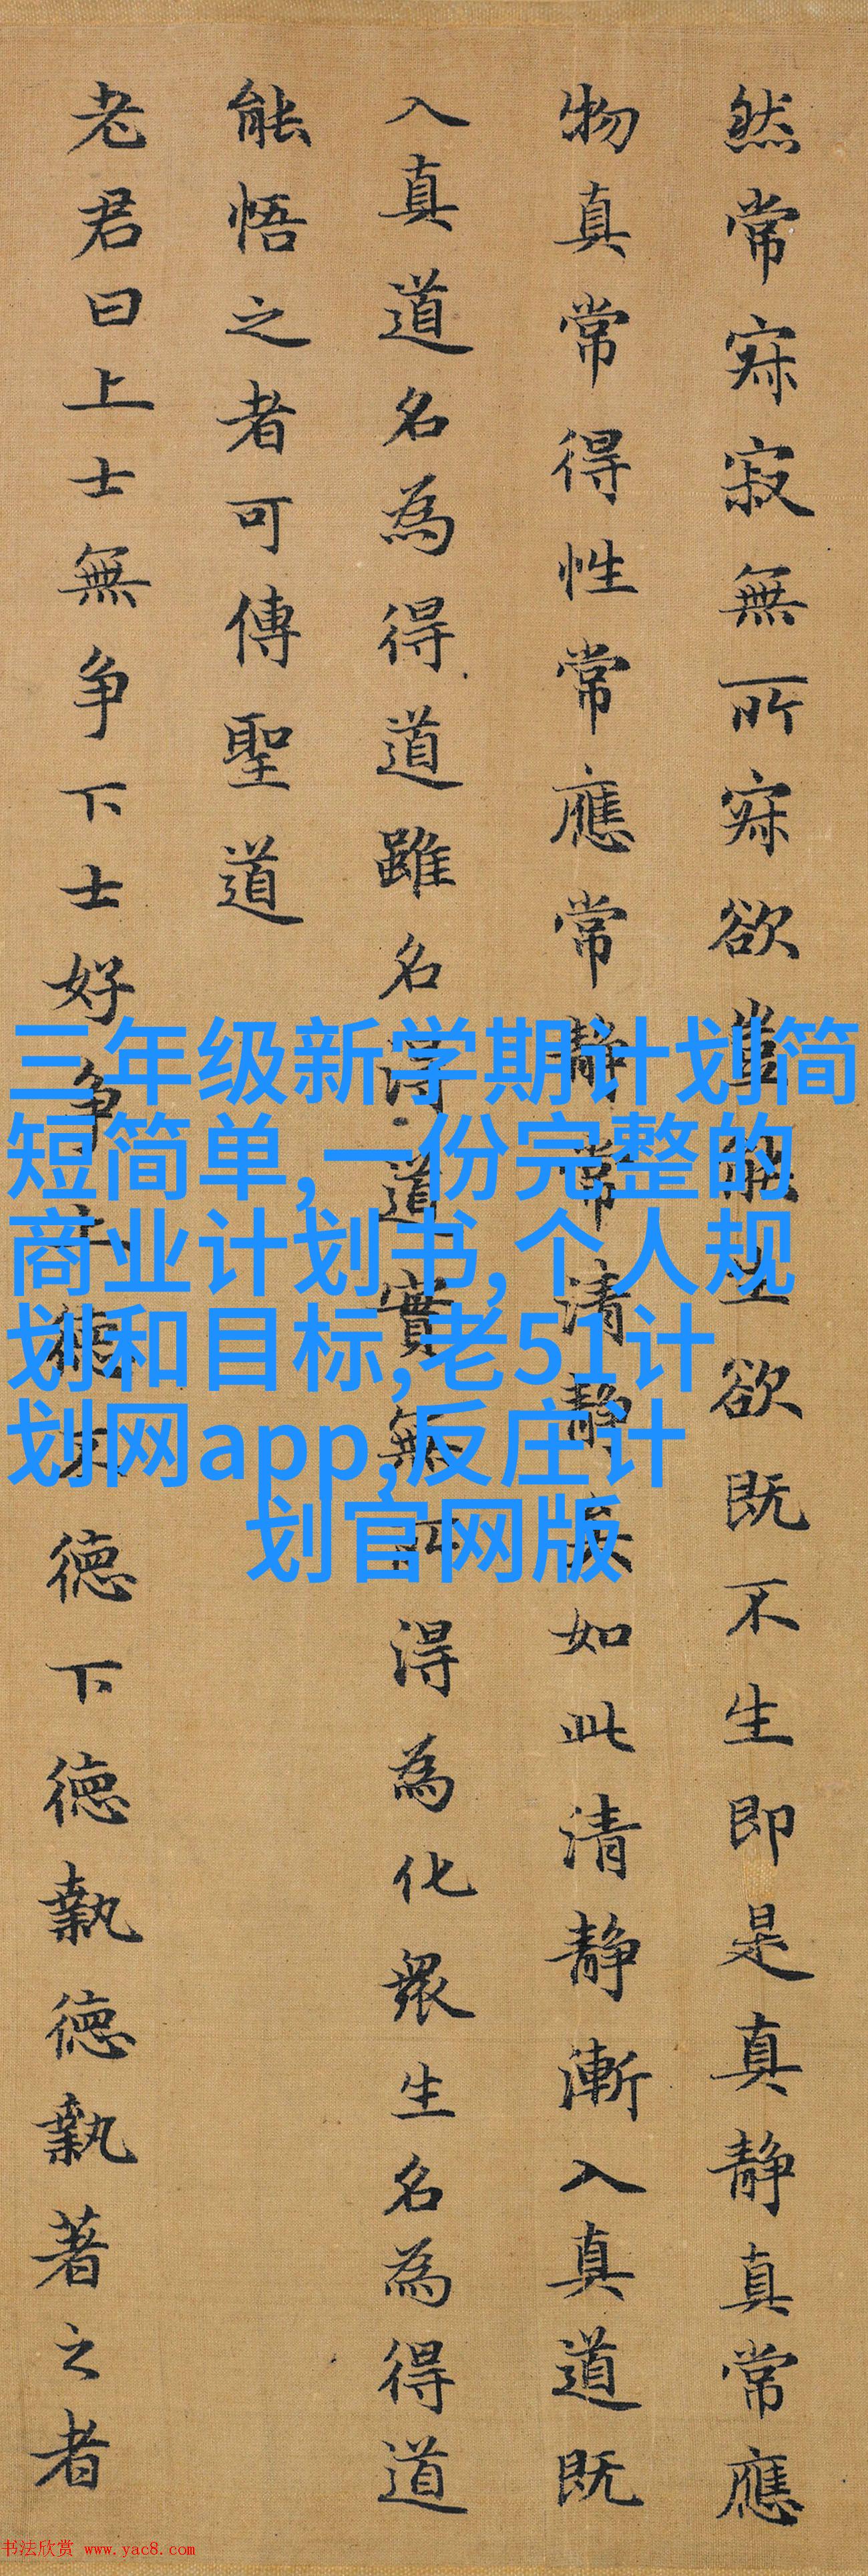 然常寂寂無所寂欲豈能生欲既不生即是真静真常應
物真常得性常應常静常清静矣如此清静漸入真道既
入真道名為得道雖名得道實無所得為化眾生名為得道
能悟之者可傳聖道
老君曰上士無争下士好争上德不德下德執德執著之者
三年级新学期计划简
短简单,一份完整的
商业计划书,个人规
划和目标,老51计
划网app,反庄计
划官网版
书法欣赏 www.yac8.com